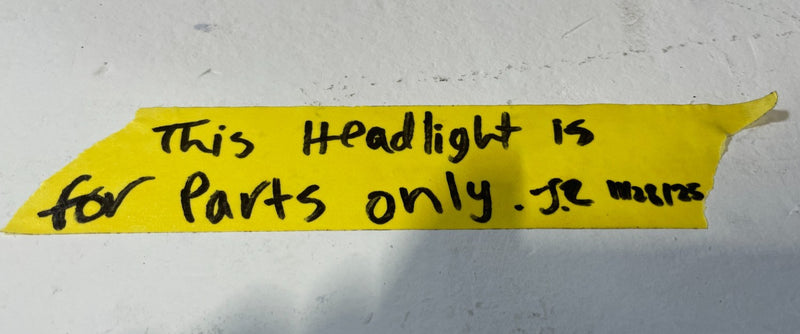 This Headlight is
for Parts only. J.R 11/28/25